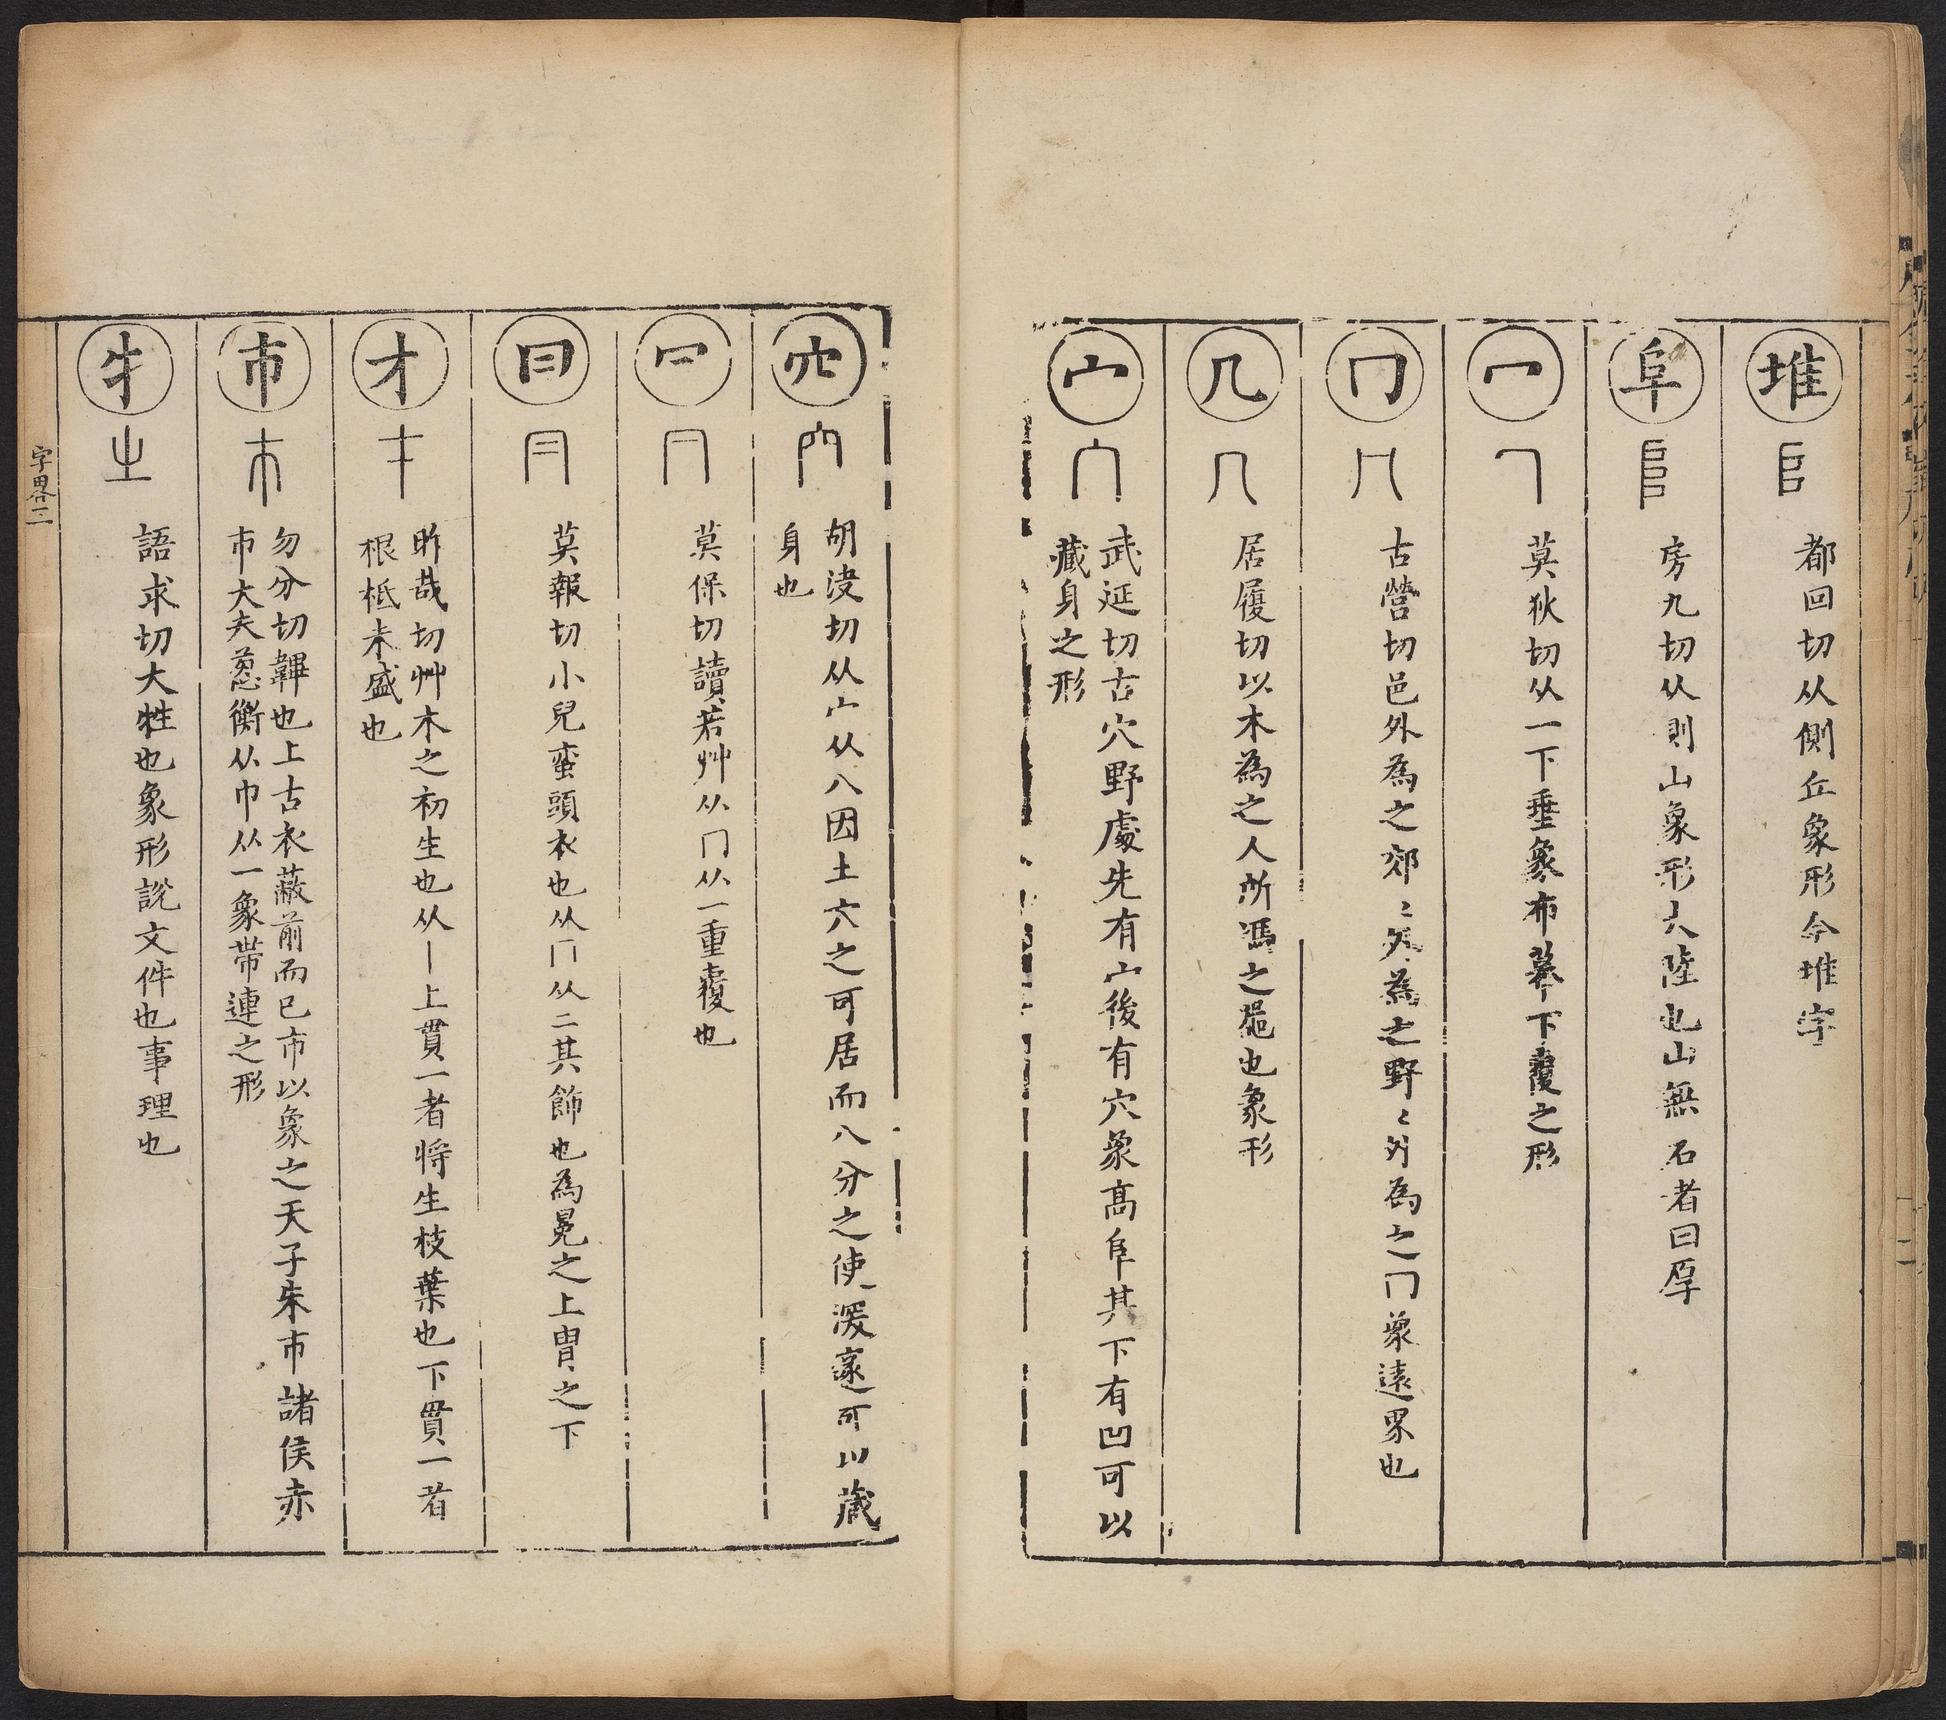 堆
都回切从側丘象形今堆字
阜
房九切从則山象形大陸也山無石者曰厚
冖
莫狄切从一下垂象布幕下覆之形
冂
古營切邑外為之郊〻外為之野〻外為之冂象遠界也
几
居履切以木為之人所馮之凥也象形
宀
武延切古穴野處先有宀後有穴象高𨸏其下有凹可以
藏身之形
穴
胡浸切从宀从八因土穴之可居而八分之使深邃可以藏
身也
𠔼
莫保切讀若艸从冂从一重覆也
冃
莫報切小兒蛮頭衣也从冂从二其飾也為冕之上冑之下
才
昨哉切艸木之初生也从丨上貫一者将生枝葉也下貫一者
根柢未盛也
巿
勿分切韠也上古衣蔽前而已巿以象之天子朱巿諸侯赤
巿大夫蔥衡从巾从一象帶連之形
牛
語求切大牲也象形說文件也事理也
字畧二